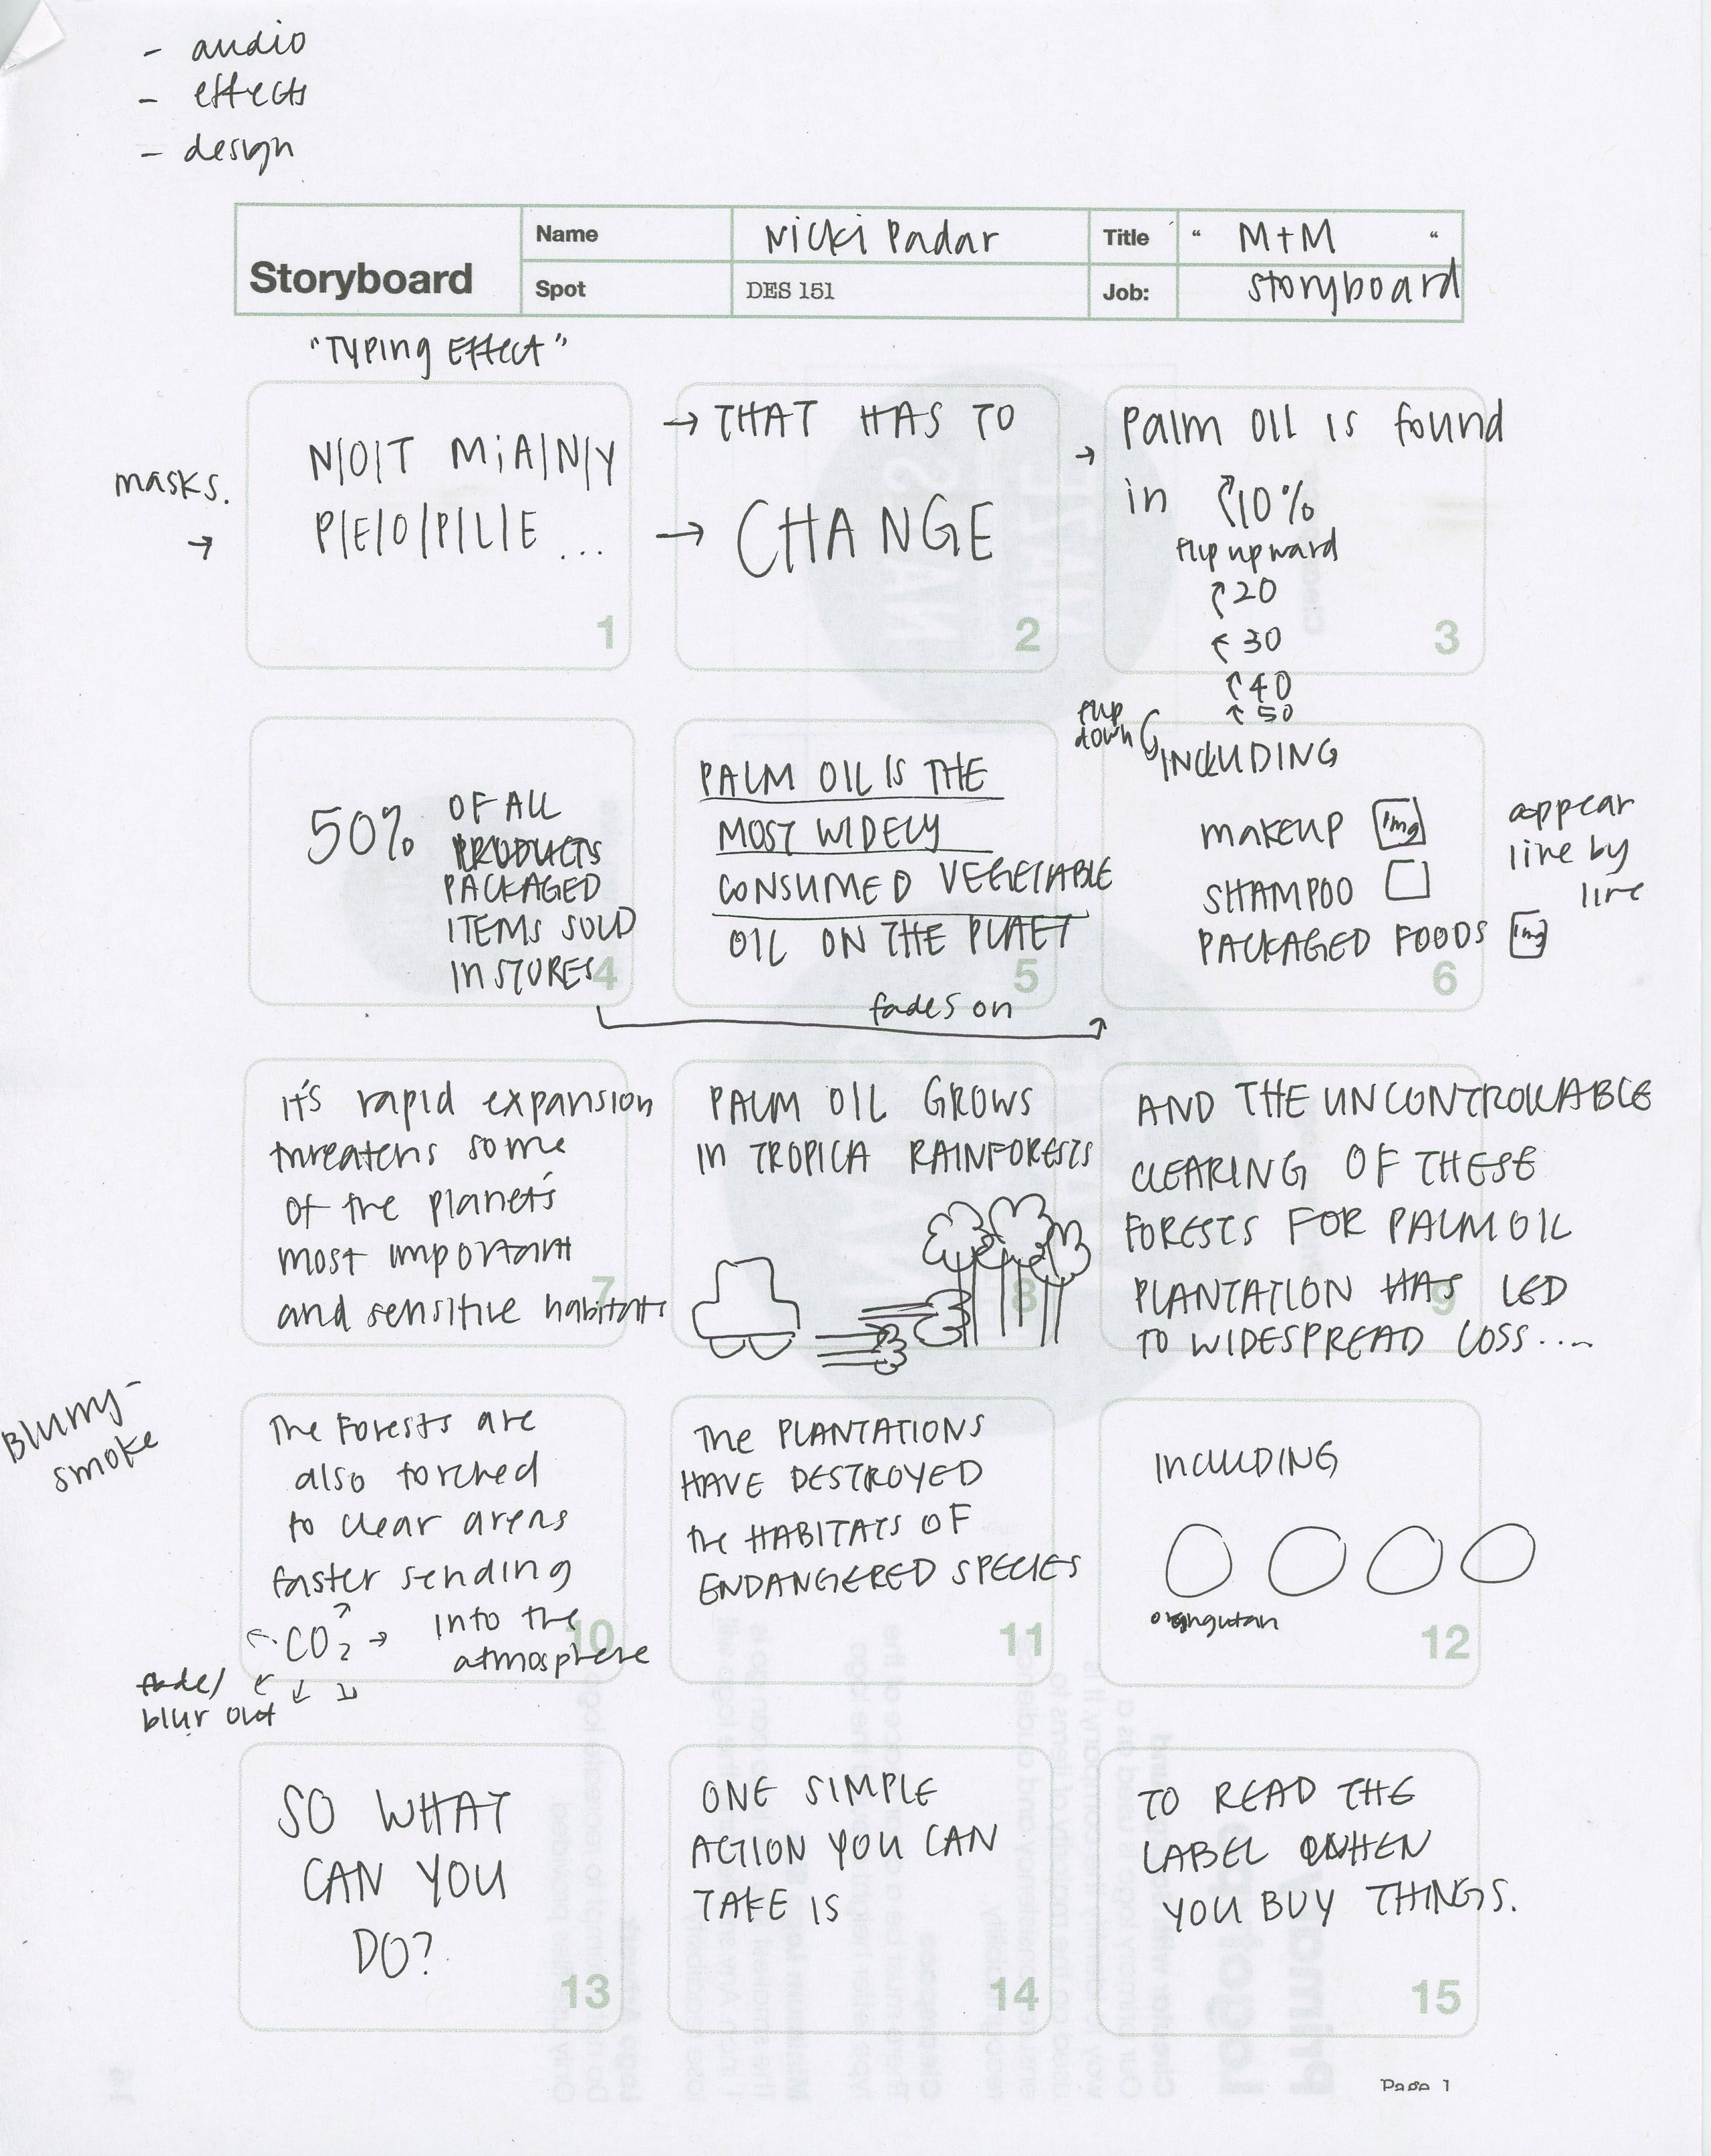 - audio
- effects
- design
Storyboard
Name
Nicki Padar
Title
" M+M "
Spot
DES 151
Job:
storyboard
"Typing Effect"
masks.
→
N|O|T M|A|N|Y
P|E|O|P|L|E ...
1
→ THAT HAS TO
→ CHANGE
2
→ Palm oil is found
in 10%
flip upward
20
30
40
50
3
50% OF ALL
PRODUCTS
PACKAGED
ITEMS SOLD
IN STORES
4
PALM OIL IS THE
MOST WIDELY
CONSUMED VEGETABLE
OIL ON THE PLAET
5
fades on
flip
down
INCLUDING
MAKEUP img
SHAMPOO
PACKAGED FOODS img
appear
line by
line
6
it's rapid expansion
threatens some
of the planet's
most important
and sensitive habitats
7
PALM OIL GROWS
in TROPICA RAINFORESTS
8
AND THE UNCONTROLLABLE
CLEARING OF THESE
FORESTS FOR PALM OIL
PLANTATION HAS LED
TO WIDESPREAD LOSS....
9
Blurry-
smoke
The Forests are
also torched
to clear areas
faster sending
CO2 → into the
atmosphere
fade/
blur out
10
The PLANTATIONS
HAVE DESTROYED
the HABITATS OF
ENDANGERED SPECIES
11
INCLUDING
orangutan
12
SO WHAT
CAN YOU
DO?
13
ONE SIMPLE
ACTION YOU CAN
TAKE IS
14
TO READ THE
LABEL WHEN
YOU BUY THINGS.
15
Page 1